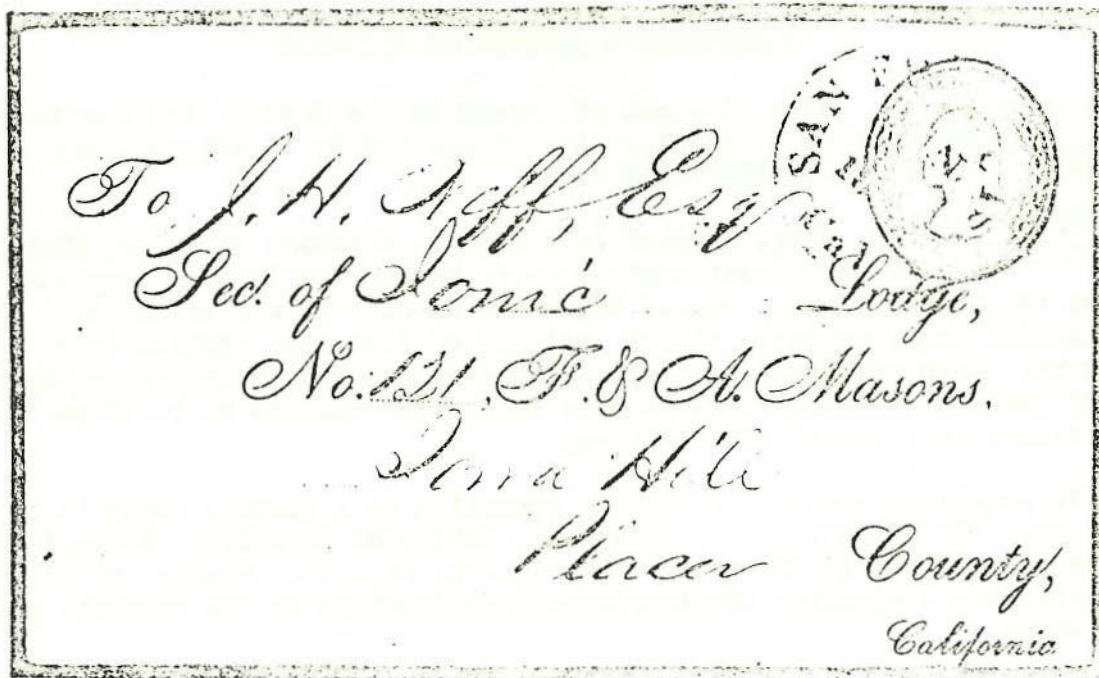 To J. H. Neff, Esq
Sec. of Ionic Lodge,
No. 121, F. & A. Masons.
Iowa Hill
Placer County,
California
SAN
Cal